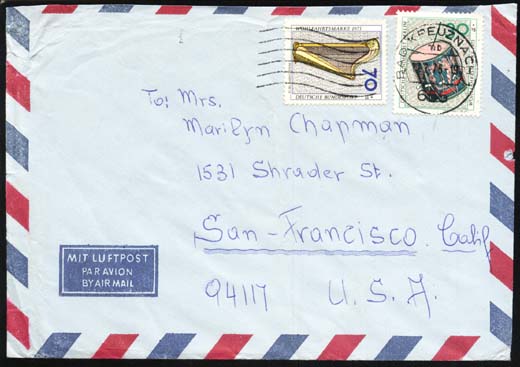 WOHLFAHRTSMARKE 1973
70
DEUTSCHE BUNDESPOST
KREUZNACH
To: Mrs.
Marilyn Chapman
1531 Shrader St.
San-Francisco, Calif
94117 U.S.A.
MIT LUFTPOST
PAR AVION
BY AIR MAIL